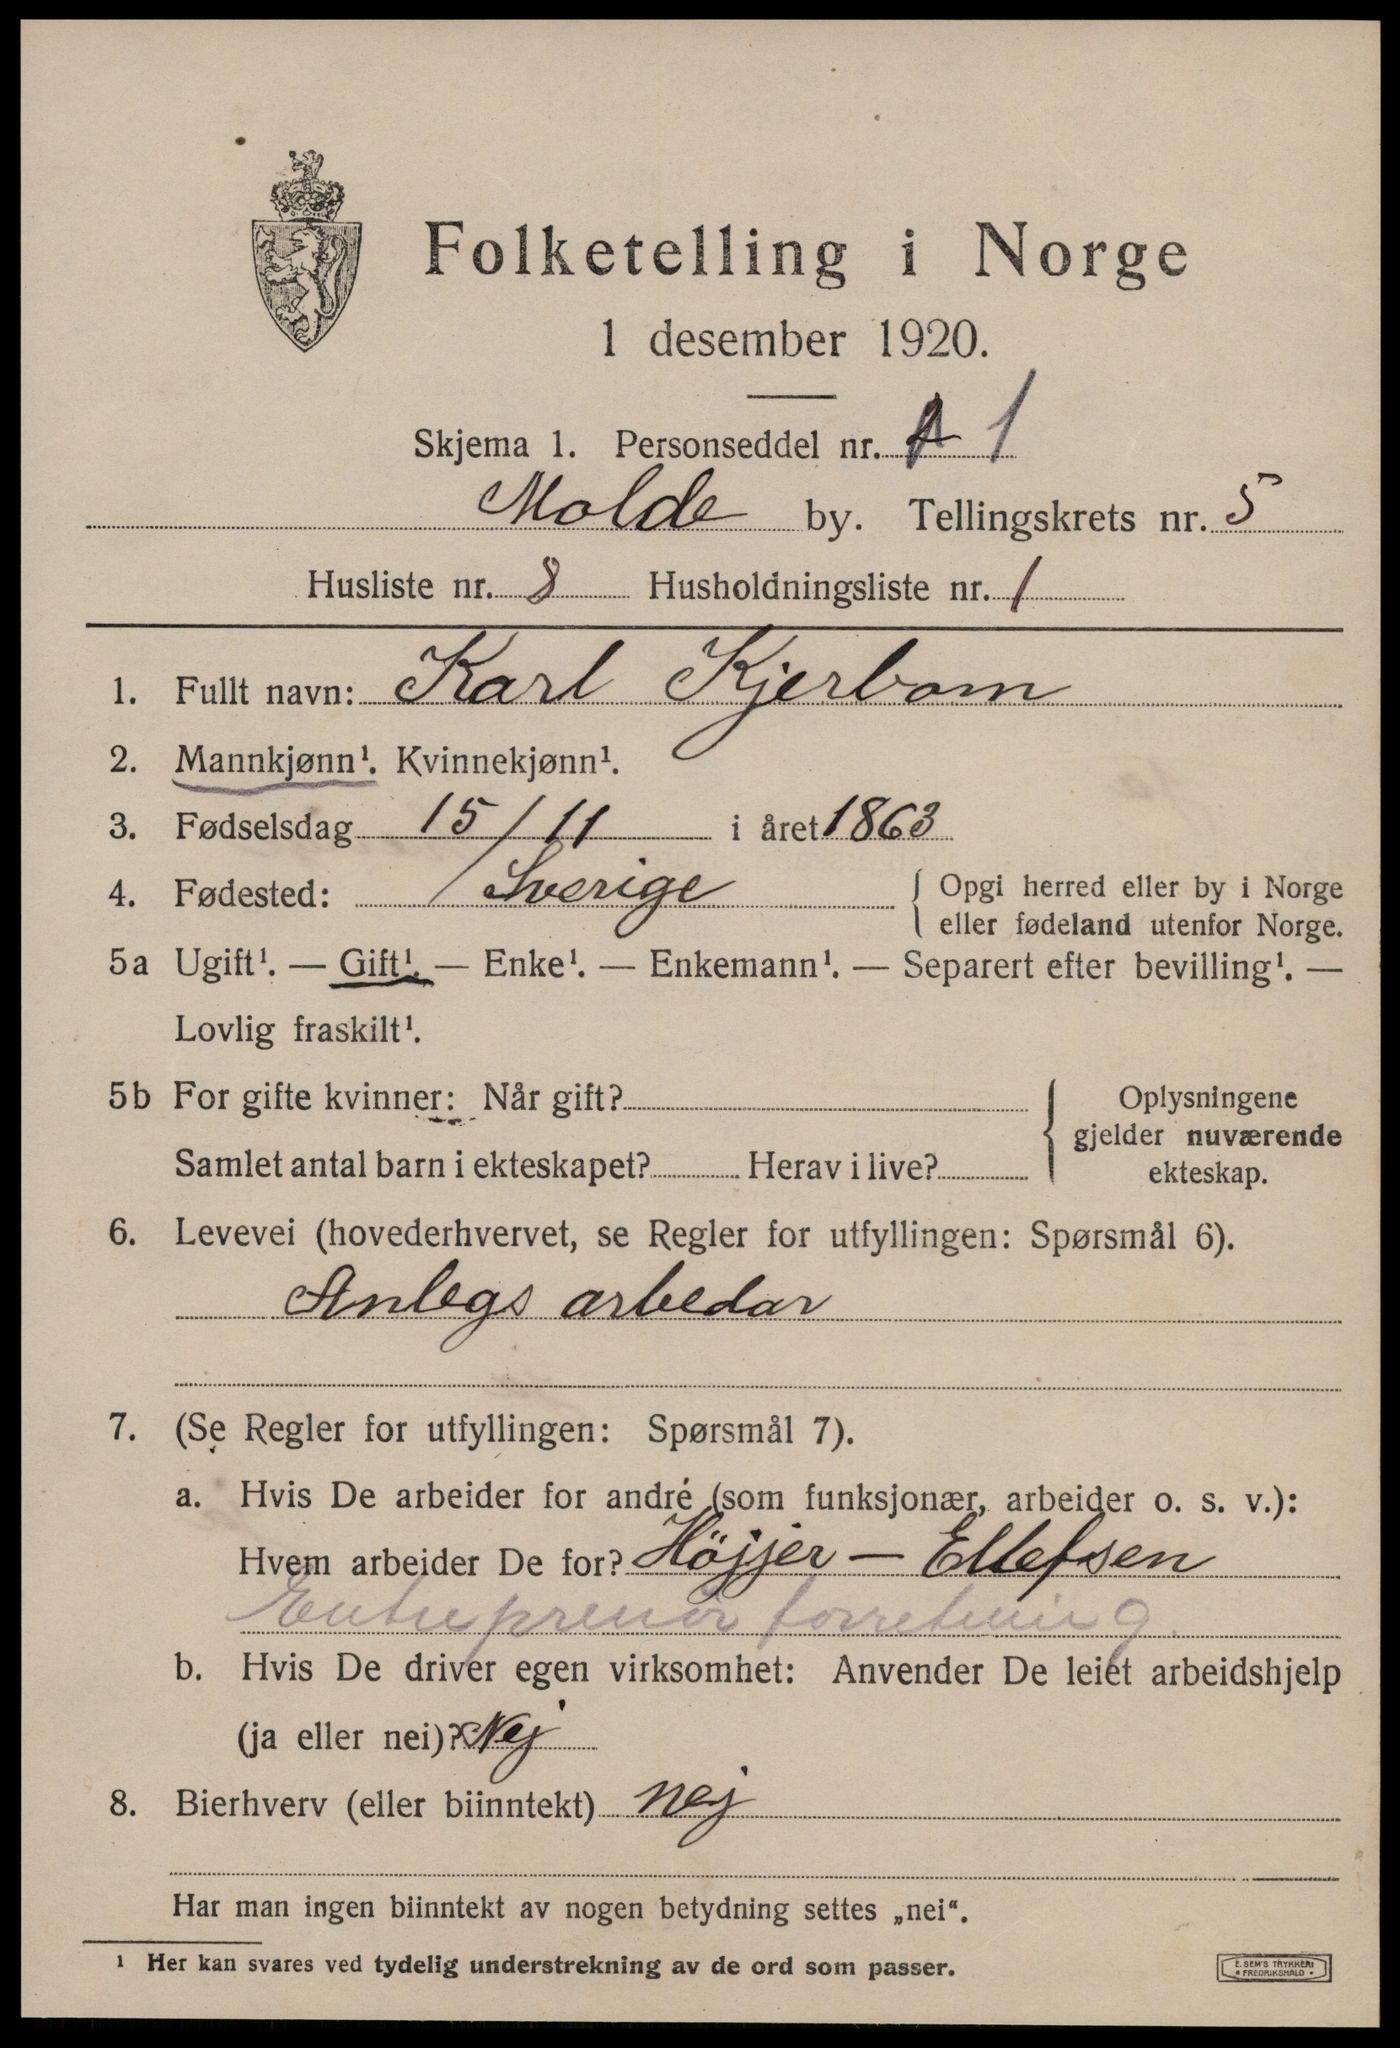 Folketelling i Norge
1 desember 1920.
Skjema 1. Personseddel nr. 1
Molde by. Tellingskrets nr. 5
Husliste nr. 8 Husholdningsliste nr. 1
1. Fullt navn: Karl Kjerbom
2. Mannkjønn¹. Kvinnekjønn¹.
3. Fødselsdag 15/11 i året 1863
4. Fødested: Sverige { Opgi herred eller by i Norge
eller fødeland utenfor Norge.
5a Ugift¹. — Gift¹. — Enke¹. — Enkemann¹. — Separert efter bevilling¹. —
Lovlig fraskilt¹.
5b For gifte kvinner: Når gift? { Oplysningene
gjelder nuværende
Samlet antal barn i ekteskapet? Herav i live? ekteskap.
6. Levevei (hovederhvervet, se Regler for utfyllingen: Spørsmål 6).
Anlegs arbedar
7. (Se Regler for utfyllingen: Spørsmål 7).
a. Hvis De arbeider for andre (som funksjonær, arbeider o. s. v.):
Hvem arbeider De for? Höjjer — Ellefsen
Entreprenör forretning.
b. Hvis De driver egen virksomhet: Anvender De leiet arbeidshjelp
(ja eller nei)? Nej
8. Bierhverv (eller biinntekt) nej
Har man ingen biinntekt av nogen betydning settes „nei“.
¹ Her kan svares ved tydelig understrekning av de ord som passer.
E. SEM'S TRYKKERI
• FREDRIKSHALD •